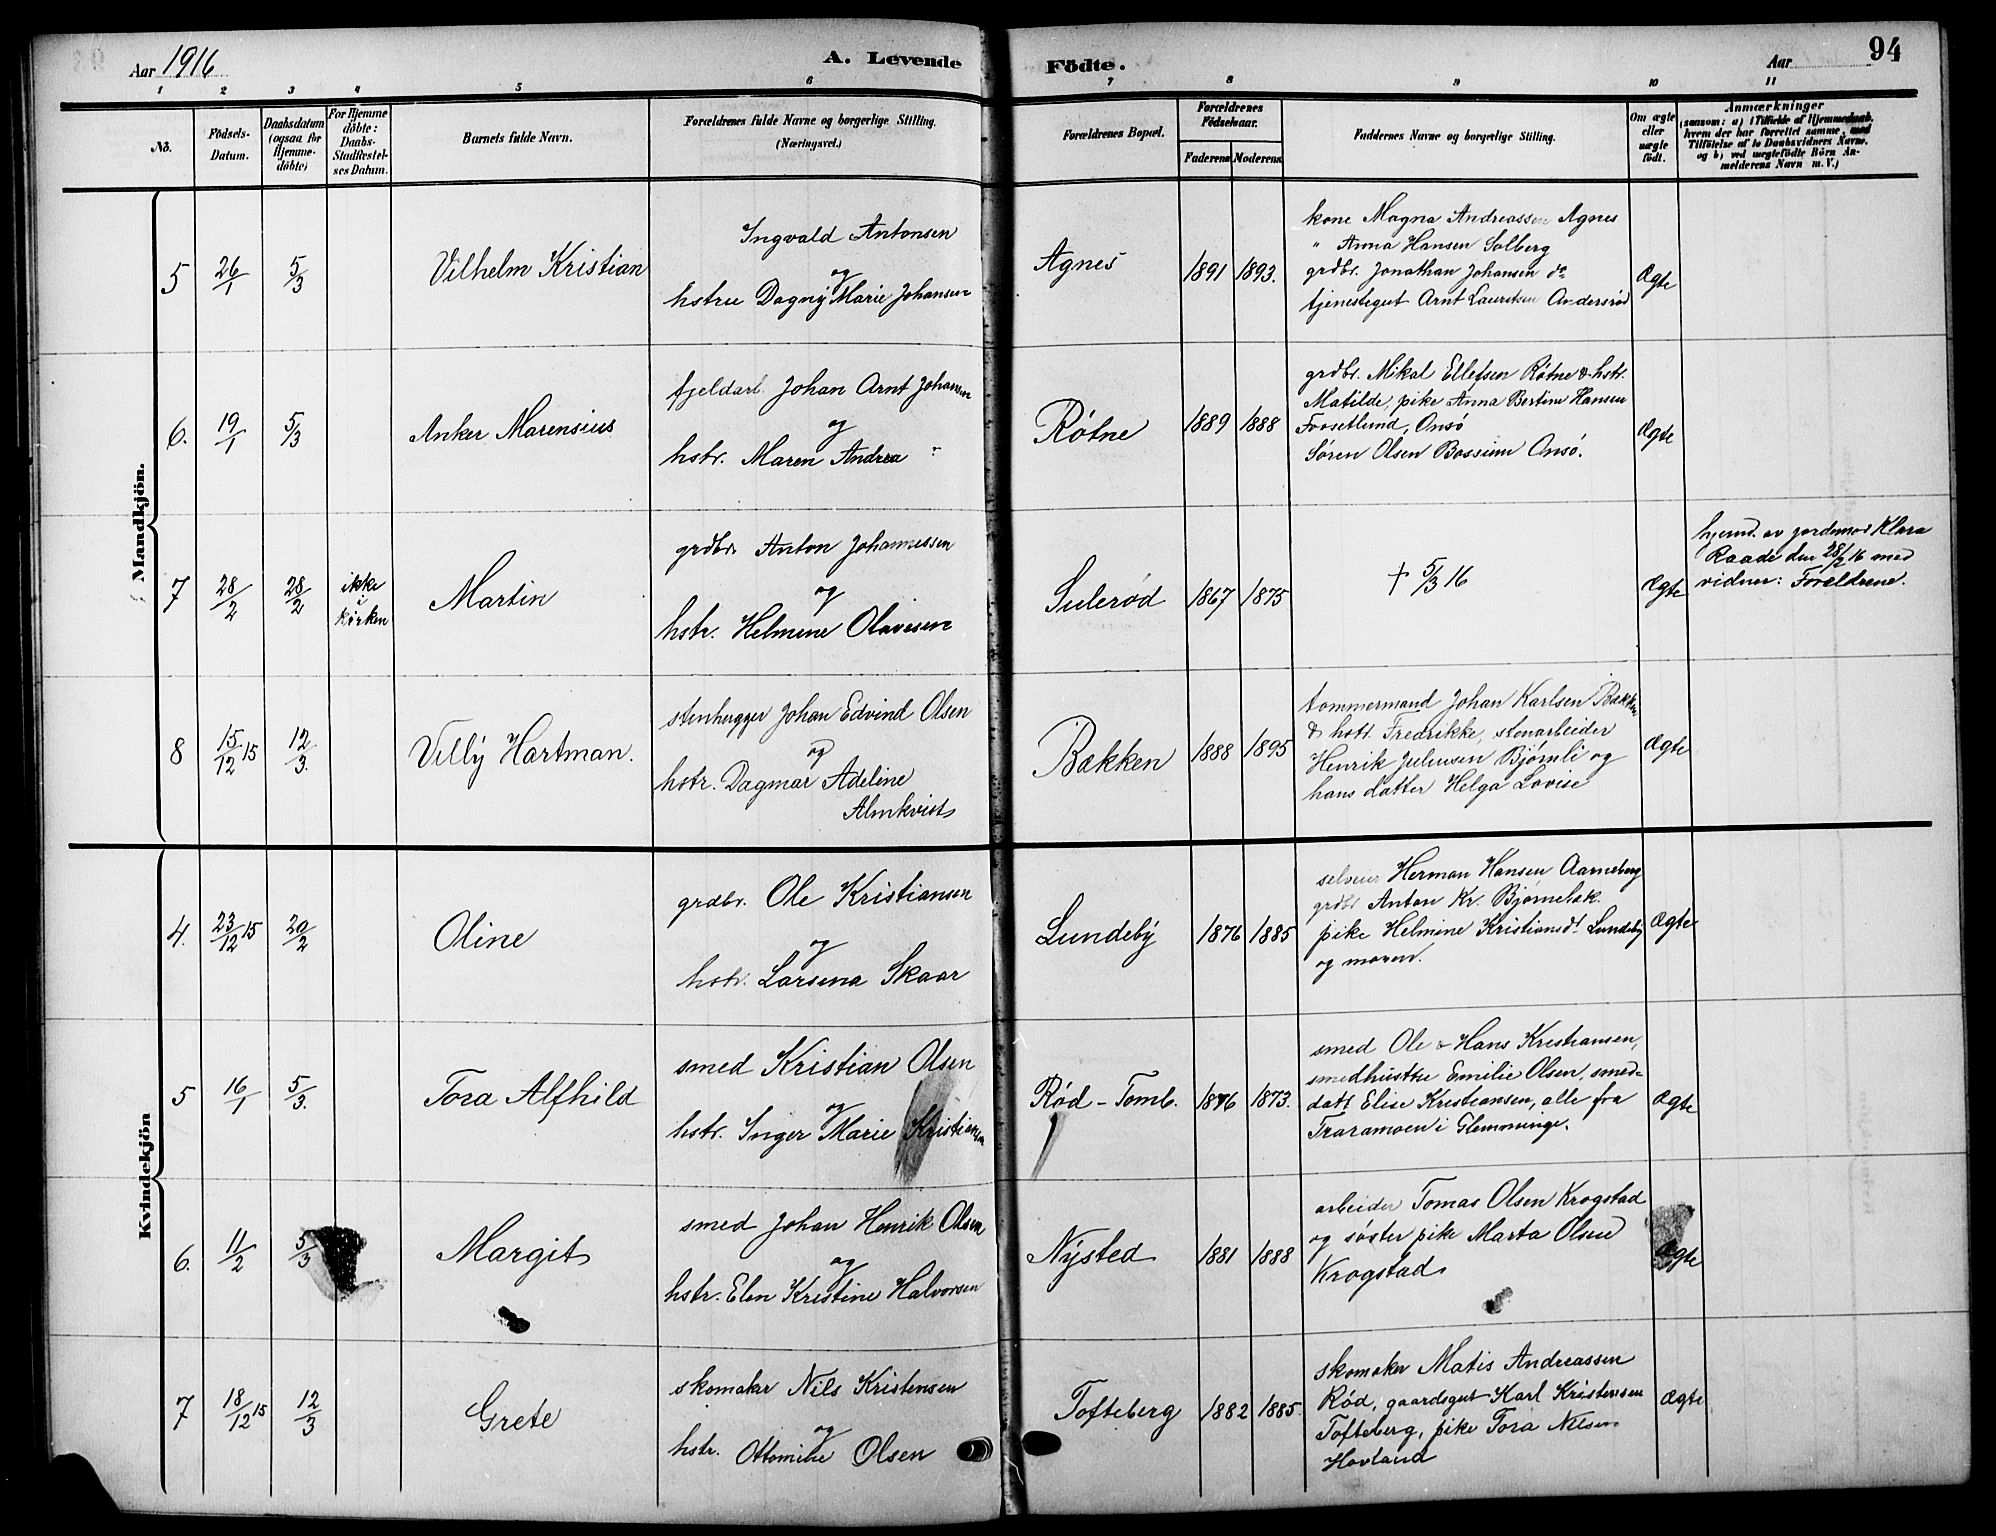 Aar 1916
A. Levende Födte.
Aar
94
1 2 3 4 5 6 7 8 9 10 11
No.
Födsels-
Datum.
Daabsdatum
(ogsaa for
Hjemme-
döbte)
For Hjemme
döbte:
Daabs-
Stadfæstel-
ses Datum.
Barnets fulde Navn.
Forældrenes fulde Navne og borgerlige Stilling.
(Næringsvei.)
Forældrenes Bopæl.
Forældrenes
Födselsaar.
Faderens
Moderens
Faddernes Navne og borgerlige Stilling.
Om ægte
eller
uægte
födt.
Anmærkninger
(saasom: a) i Tilfælde af Hjemmedaab,
hvem der har forrettet samme, med
Tilföielse af to Daabsvidners Navne,
og b) ved uægtefödte Börn An-
melderens Navn m. V.)
Mandkjön.
5 26/1 5/3 Vilhelm Kristian
Ingvald Antonsen
og
hstru Dagny Marie Johansen
Agnes 1891 1893.
kone Magna Andreassen Agnes
" Anna Hansen Solberg
grdbr. Jonathan Johansen do
tjenestegut Arnt Lauritsen Andersrød
Ægte
6. 19/1 5/3 Anker Marensius
fjeldarb. Johan Arnt Johansen
og
hstr. Maren Andrea "
Røtne 1889 1888
grdbr. Mikal Ellefsen Røtne & hstr.
Matilde, pike Anna Bertine Hansen
Onsø
Søren Olsen Bossum Onsø.
Ægte
7 28/2 28/2 ikke
i
kirken
Martin
grdbr. Anton Johannessen
og
hstr. Helmine Olavesen
Sulerød 1867 1875
† 5/3 16
Ægte
hjemd. av jordemor Klara
Raade den 28/2 16 med
vidner: Foreldrene.
8 15/12 15 12/3. Villy Hartman.
stenhugger Johan Edvind Olsen
og
hstr. Dagmar Adeline
Almkvist
Bakken 1888 1895
tømmermand Johan Karlsen Bakken
& hstr. Fredrikke, stenarbeider
Henrik Juliusen Bjørnli og
hans datter Helga Lovise
Ægte
Kvindekjön
4. 23/12 15 20/2 Oline
grdbr. Ole Kristiansen
og
hstr. Larsina Skaar
Lundeby 1876 1885
selveier Herman Hansen Aarneberg
grdbr. Anton Kr. Bjørnebæk.
pike Helmine Kristiansdt. Lundeby
og moren.
Ægte
5 16/1 5/3. Tora Alfhild
smed Kristian Olsen
og
hstr. Inger Marie Kristiansen
Rød - Tomb. 1876 1873.
smed Ole & Hans Kristiansen,
smedhustru Emilie Olsen, smed=
datt Elise Kristiansen, alle fra
Traramoen i Glemminge.
Ægte
6. 11/2 5/3 Margit
smed Johan Henrik Olsen
og
hstr. Elen Kristine Halvorsen
Nysted 1881 1888
arbeider Tomas Olsen Krogstad
og søster pike Marta Olsen
Krogstad
Ægte
7 18/12 15 12/3 Grete
skomaker Nils Kristensen
og
hstr. Ottomine Olsen
Tofteberg 1882 1885.
skomaker Matis Andreassen
Rød, gaardsgut Karl Kristensen
Tofteberg, pike Tora Nilsen
Hovland
Ægte